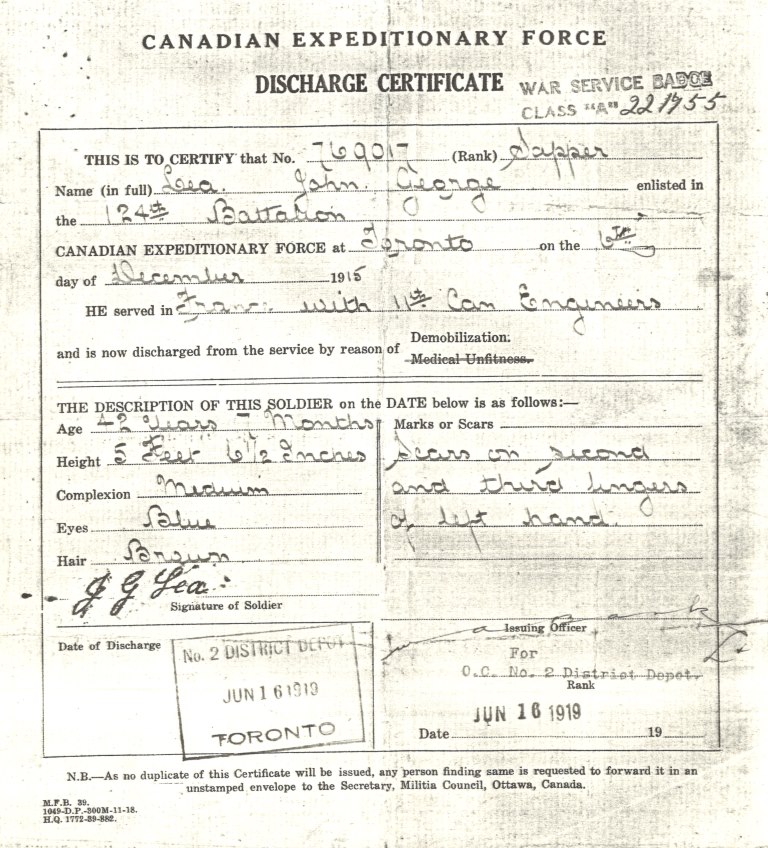 CANADIAN EXPEDITIONARY FORCE
DISCHARGE CERTIFICATE
WAR SERVICE BADGE
CLASS "A" 221955
THIS IS TO CERTIFY that No. 769017 (Rank) Sapper
Name (in full) Lea. John. George enlisted in
the 124th Battalion
CANADIAN EXPEDITIONARY FORCE at Toronto on the 6th
day of December 1915
HE served in France with 11th Can Engineers
and is now discharged from the service by reason of
Demobilization.
Medical Unfitness.
THE DESCRIPTION OF THIS SOLDIER on the DATE below is as follows:—
Age 42 Years 7 Months
Height 5 Feet 6 1/2 Inches
Complexion Medium
Eyes Blue
Hair Brown
Marks or Scars
Scars on second
and third fingers
of left hand.
J G Lea.
Signature of Soldier
Date of Discharge
No. 2 DISTRICT DEPOT
JUN 16 1919
TORONTO
Issuing Officer
For
O.C. No. 2 District Depot.
Rank
JUN 16 1919
Date 19
N.B.—As no duplicate of this Certificate will be issued, any person finding same is requested to forward it in an
unstamped envelope to the Secretary, Militia Council, Ottawa, Canada.
M.F.B. 39.
1049-D.P.-300M-11-18.
H.Q. 1772-39-882.